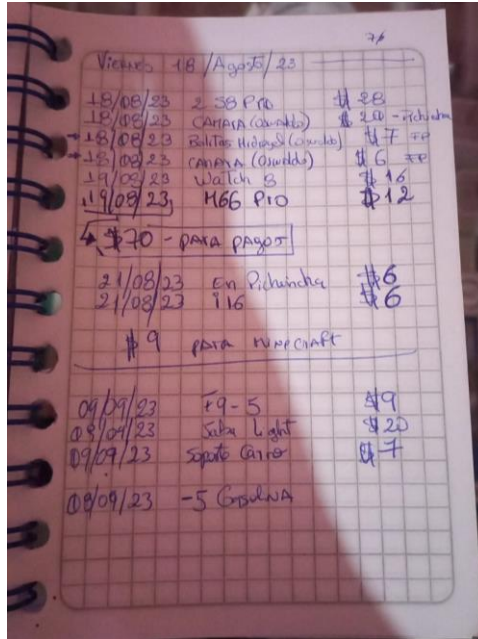 7/
Viernes 18/Agosto/23
18/08/23 2 S8 Pro $28
18/08/23 CAMARA (Oswaldo) $20 - Pichincha
→ 18/08/23 Bolitas Hidrogel (Oswaldo) $7 TP
→ 18/08/23 CAMARA (Oswaldo) $6 TP
19/08/23 Watch 8 $16
19/08/23 M66 Pro $12
$70 - PARA PAGOS
21/08/23 En Pichincha $6
21/08/23 i16 $6
$9 PARA
09/09/23 F9-5 $9
09/09/23 Light $20
09/09/23 Soporte Carro $7
09/09/23 -5 GasolNA